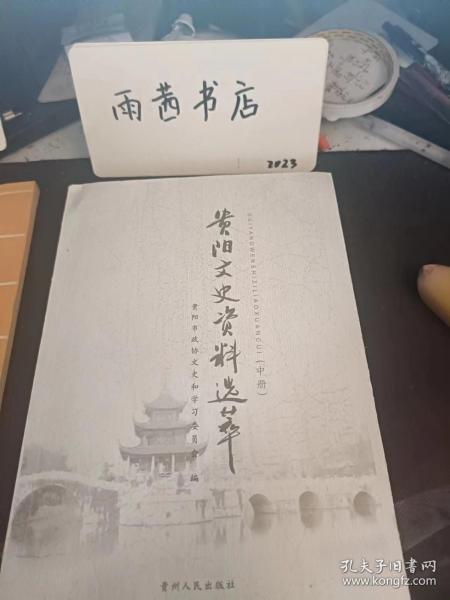 雨茜书店
2023
贵阳文史资料选萃
GUIYANGWENSHIZILIAOXUANCUI(中册)
贵阳市政协文史和学习委员会 编
贵州人民出版社
孔夫子旧书网
www.kongfz.com